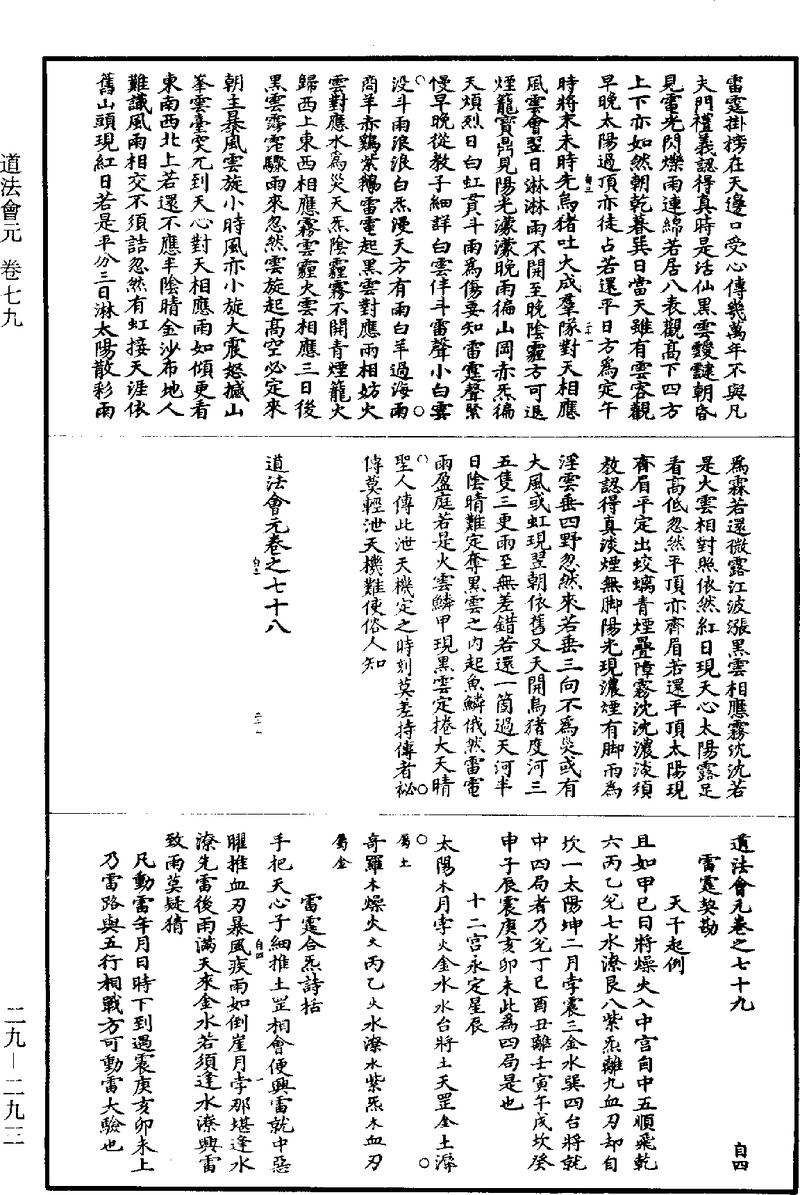 雷霆掛搒在天邊口受心傳幾萬年不與凡
夫門禮義認得真時是活仙黑雲靉靆朝昏
見電光閃爍雨連綿若居八表觀高下四方
上下亦如然朝乾暮巽日當天雖有雲容觀
早晚太陽過頂亦徒占若還平日方為定午
時將未未時先烏猪吐火成羣隊對天相應
風雲會翌日淋淋雨不開至晚陰霾方可退
煙籠寶鼎見陽光濛濛晚雨徧山岡赤炁徧
天煩烈日白虹貫斗雨為傷要知雷霆聲緊
慢早晚從教子細詳白雲伴斗雷聲小白雲
没斗雨浪浪白炁漫天方有雨白羊過海雨
商羊赤鷄紫鵝雷電起黑雲對應雨相妨火
雲對應水為災天炁陰霾霧不開青煙籠火
歸西上東西相應霧雲霾火雲相應三日後
黑雲靄靄驟雨來忽然雲旋起高空必定來
朝主暴風雲旋小時風亦小旋大震怒撼山
峯雲臺突兀到天心對天相應雨如傾更看
東南西北上若還不應半陰晴金沙布地人
難識風雨相交不須詰忽然有虹接天涯依
舊山頭現紅日若是平分三日淋太陽散彩雨
為霖若還微露江波漲黑雲相應霧沈沈若
是火雲相對照依然紅日現天心太陽露足
看高低忽然平頂亦齊眉若還平頂太陽現
齊眉平定出蛟螭青煙疊障霧沈沈濃淡須
教認得真淡煙無脚陽光現濃煙有脚雨為
淫雲垂四野忽然來若垂三向不為災或有
大風或虹現翌朝依舊又天開烏猪度河三
五隻三更雨至無差錯若還一箇過天河半
日陰晴難定奪黑雲之内起魚鱗俄然雷電
雨盈庭若是火雲鱗甲現黑雲定捲大天晴
聖人傳此泄天機定之時刻莫差持傳者祕
傳莫輕泄天機難使俗人知
道法會元卷之七十八
道法會元卷之七十九
自四
雷霆契勘
天干起例
且如甲巳日將燥火入中宮自中五順飛乾
六丙乙兌七水潦艮八紫炁離九血刃却自
坎一太陽坤二月孛震三金水巽四台將就
中四局者乃兌丁巳酉丑離壬寅午戌坎癸
申子辰震庚亥卯未此為四局是也
十二宮永定星辰
太陽木月孛火金水水台將土天罡金土潺
屬土
奇羅木燥火火丙乙火水潦水紫炁木血刃
屬金
雷霆合炁詩括
手把天心子細推土罡相會便興雷就中惡
曜推血刃暴風疾雨如倒崖月孛那堪逢水
潦先雷後雨滿天來金水若須逢水潦興雷
致雨莫疑猜
凡動雷年月日時下到遇震庚亥卯未上
乃雷路與五行相戰方可動雷大驗也
道法會元 卷七九
二九—二九三